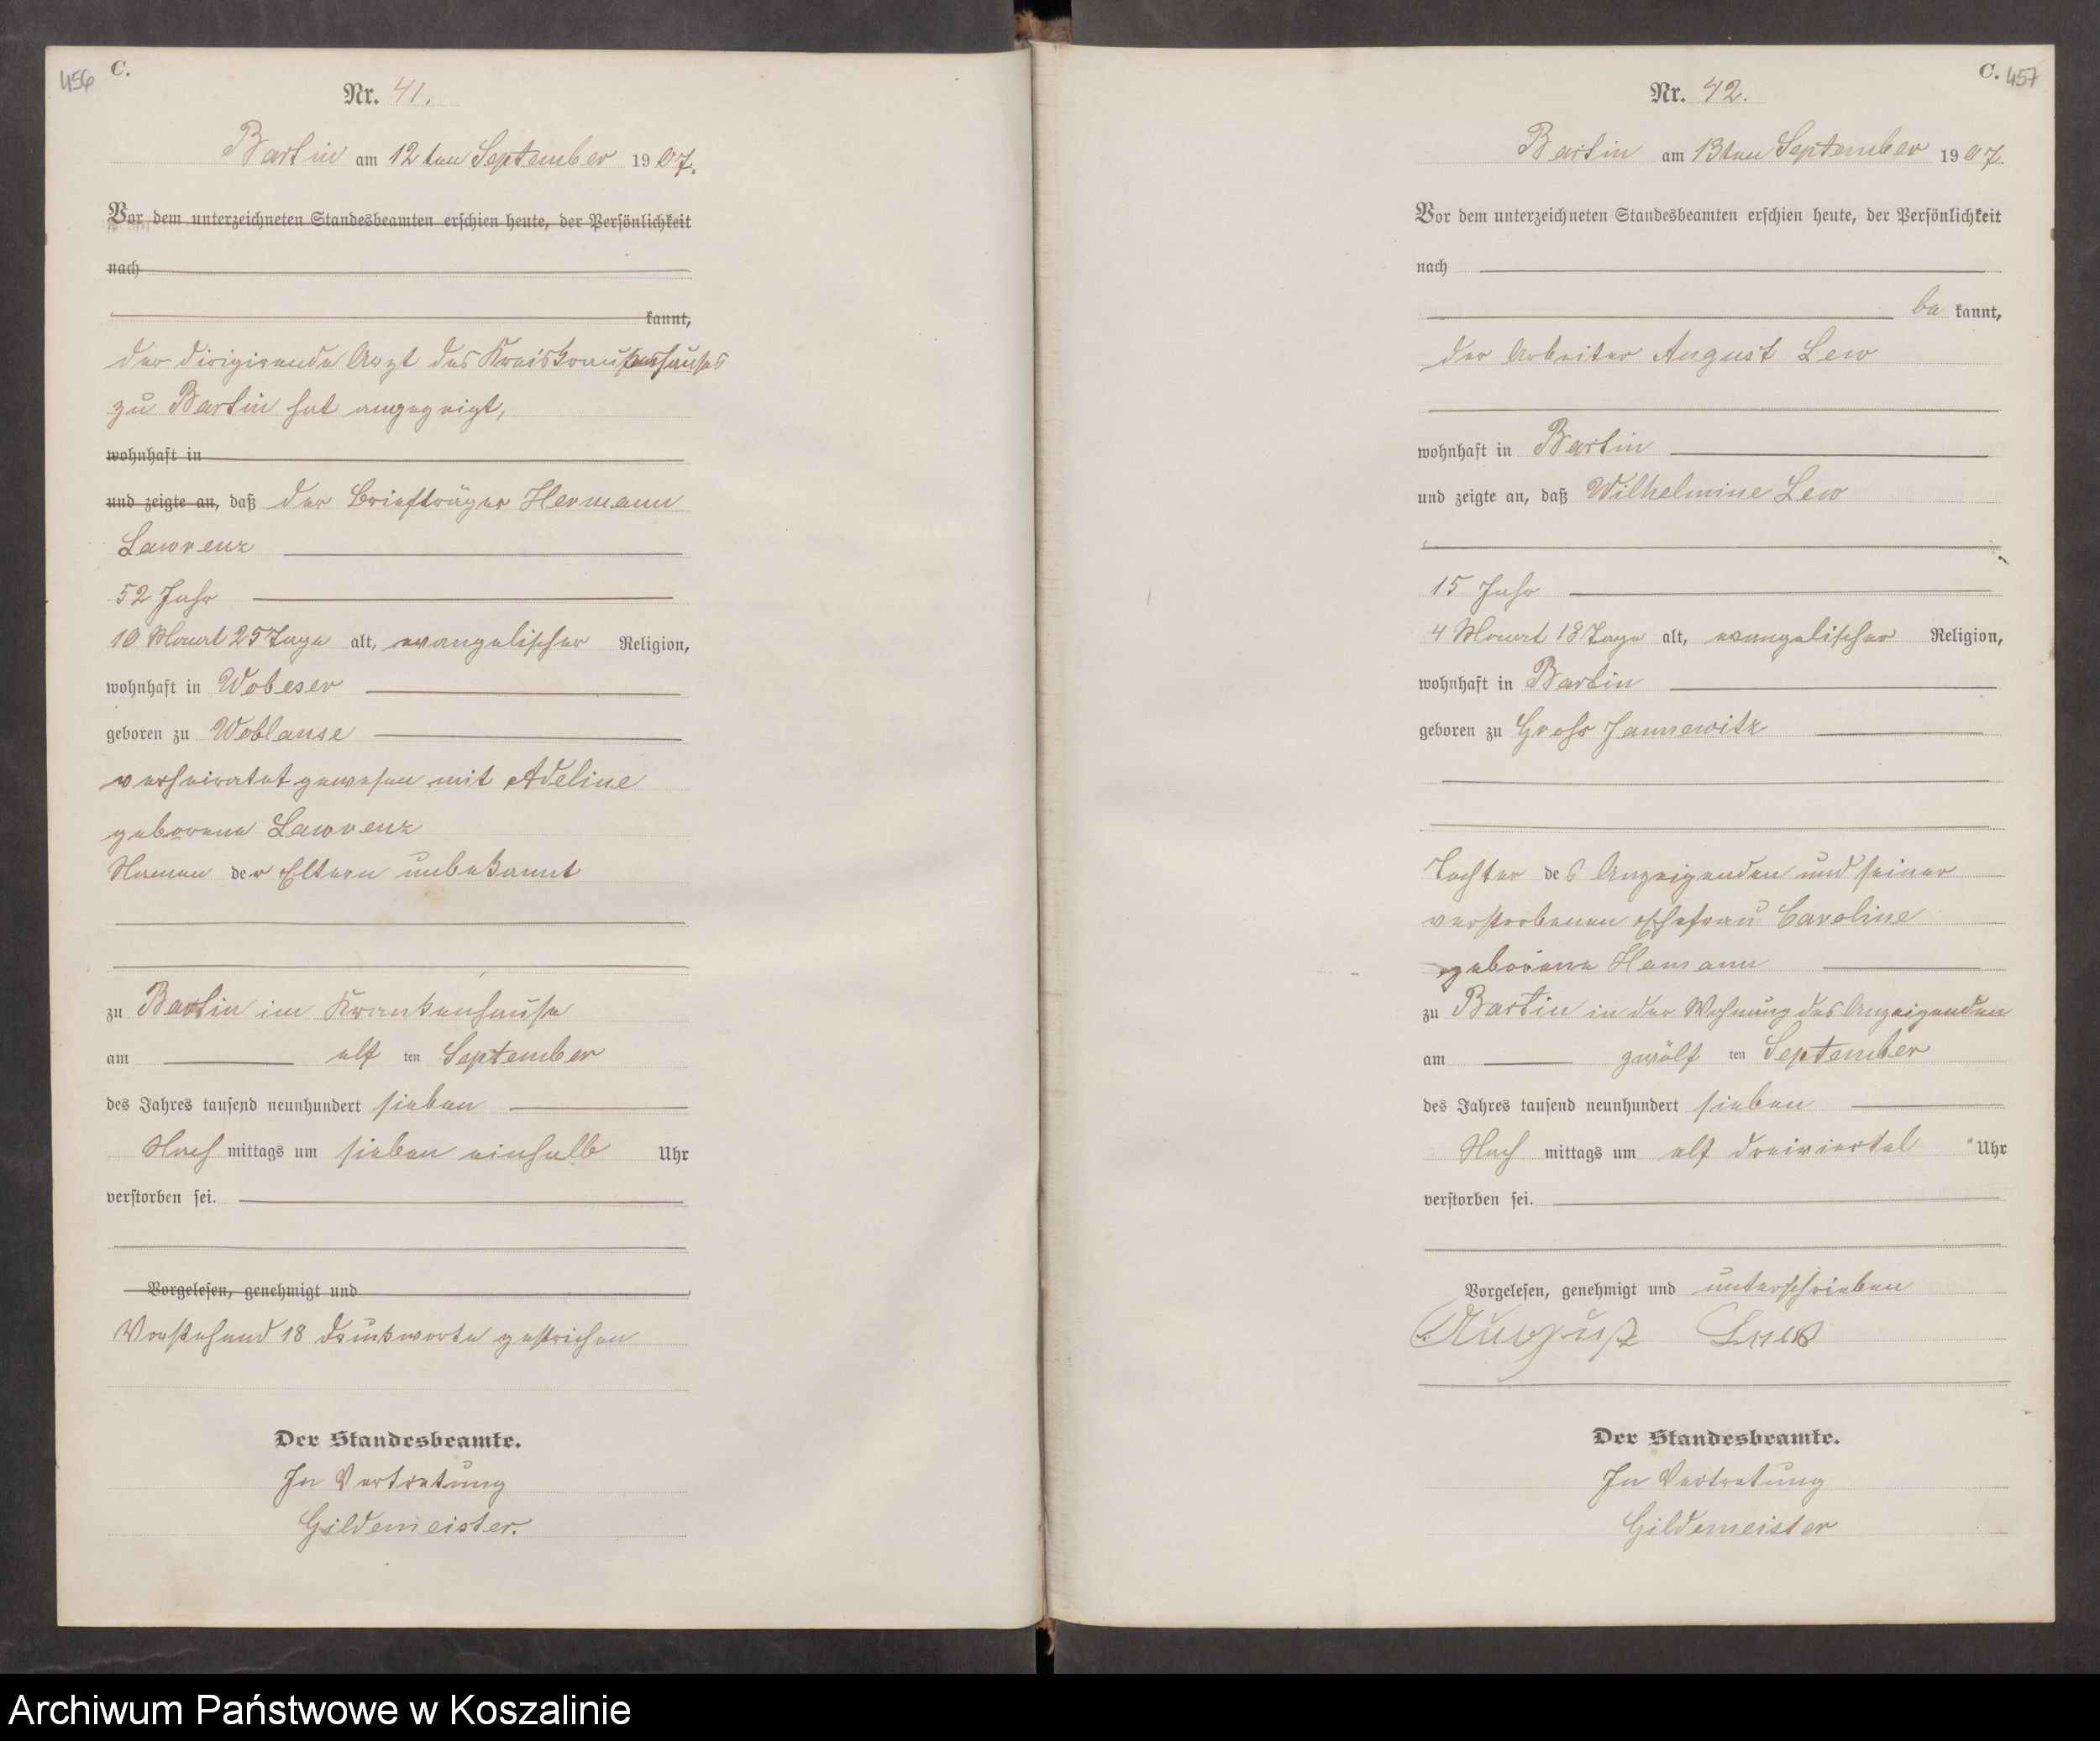 456 C.
Nr. 41.
Bartin am 12ten September 1907.
Vor dem unterzeichneten Standesbeamten erschien heute, der Persönlichkeit
nach
kannt,
der dirigirende Arzt des Kreiskrankenhauses
zu Bartin hat angezeigt,
wohnhaft in
und zeigte an, daß der Briefträger Hermann
Lawrenz
52 Jahr
10 Monat 25 Tage alt, evangelischer Religion,
wohnhaft in Wobeser
geboren zu Woblanse
verheiratet gewesen mit Adeline
geborene Lawrenz
Namen der Eltern unbekannt
zu Bartin im Krankenhause
am elf ten September
des Jahres tausend neunhundert sieben
Nach mittags um sieben einhalb Uhr
verstorben sei.
Vorgelesen, genehmigt und
Vorstehend 18 Druckworte gestrichen
Der Standesbeamte.
In Vertretung
Gildemeister.
C. 457
Nr. 42.
Bartin am 13ten September 1907.
Vor dem unterzeichneten Standesbeamten erschien heute, der Persönlichkeit
nach
be kannt,
der Arbeiter August Lew
wohnhaft in Bartin
und zeigte an, daß Wilhelmine Lew
15 Jahr
4 Monat 18 Tage alt, evangelischer Religion,
wohnhaft in Bartin
geboren zu Groß Jannewitz
Tochter des Anzeigenden und seiner
verstorbenen Ehefrau Caroline
geborene Hamann
zu Bartin in der Wohnung des Anzeigenden
am zwölf ten September
des Jahres tausend neunhundert sieben
Nach mittags um elf dreiviertel Uhr
verstorben sei.
Vorgelesen, genehmigt und unterschrieben
August Lew
Der Standesbeamte.
In Vertretung
Gildemeister
Archiwum Państwowe w Koszalinie